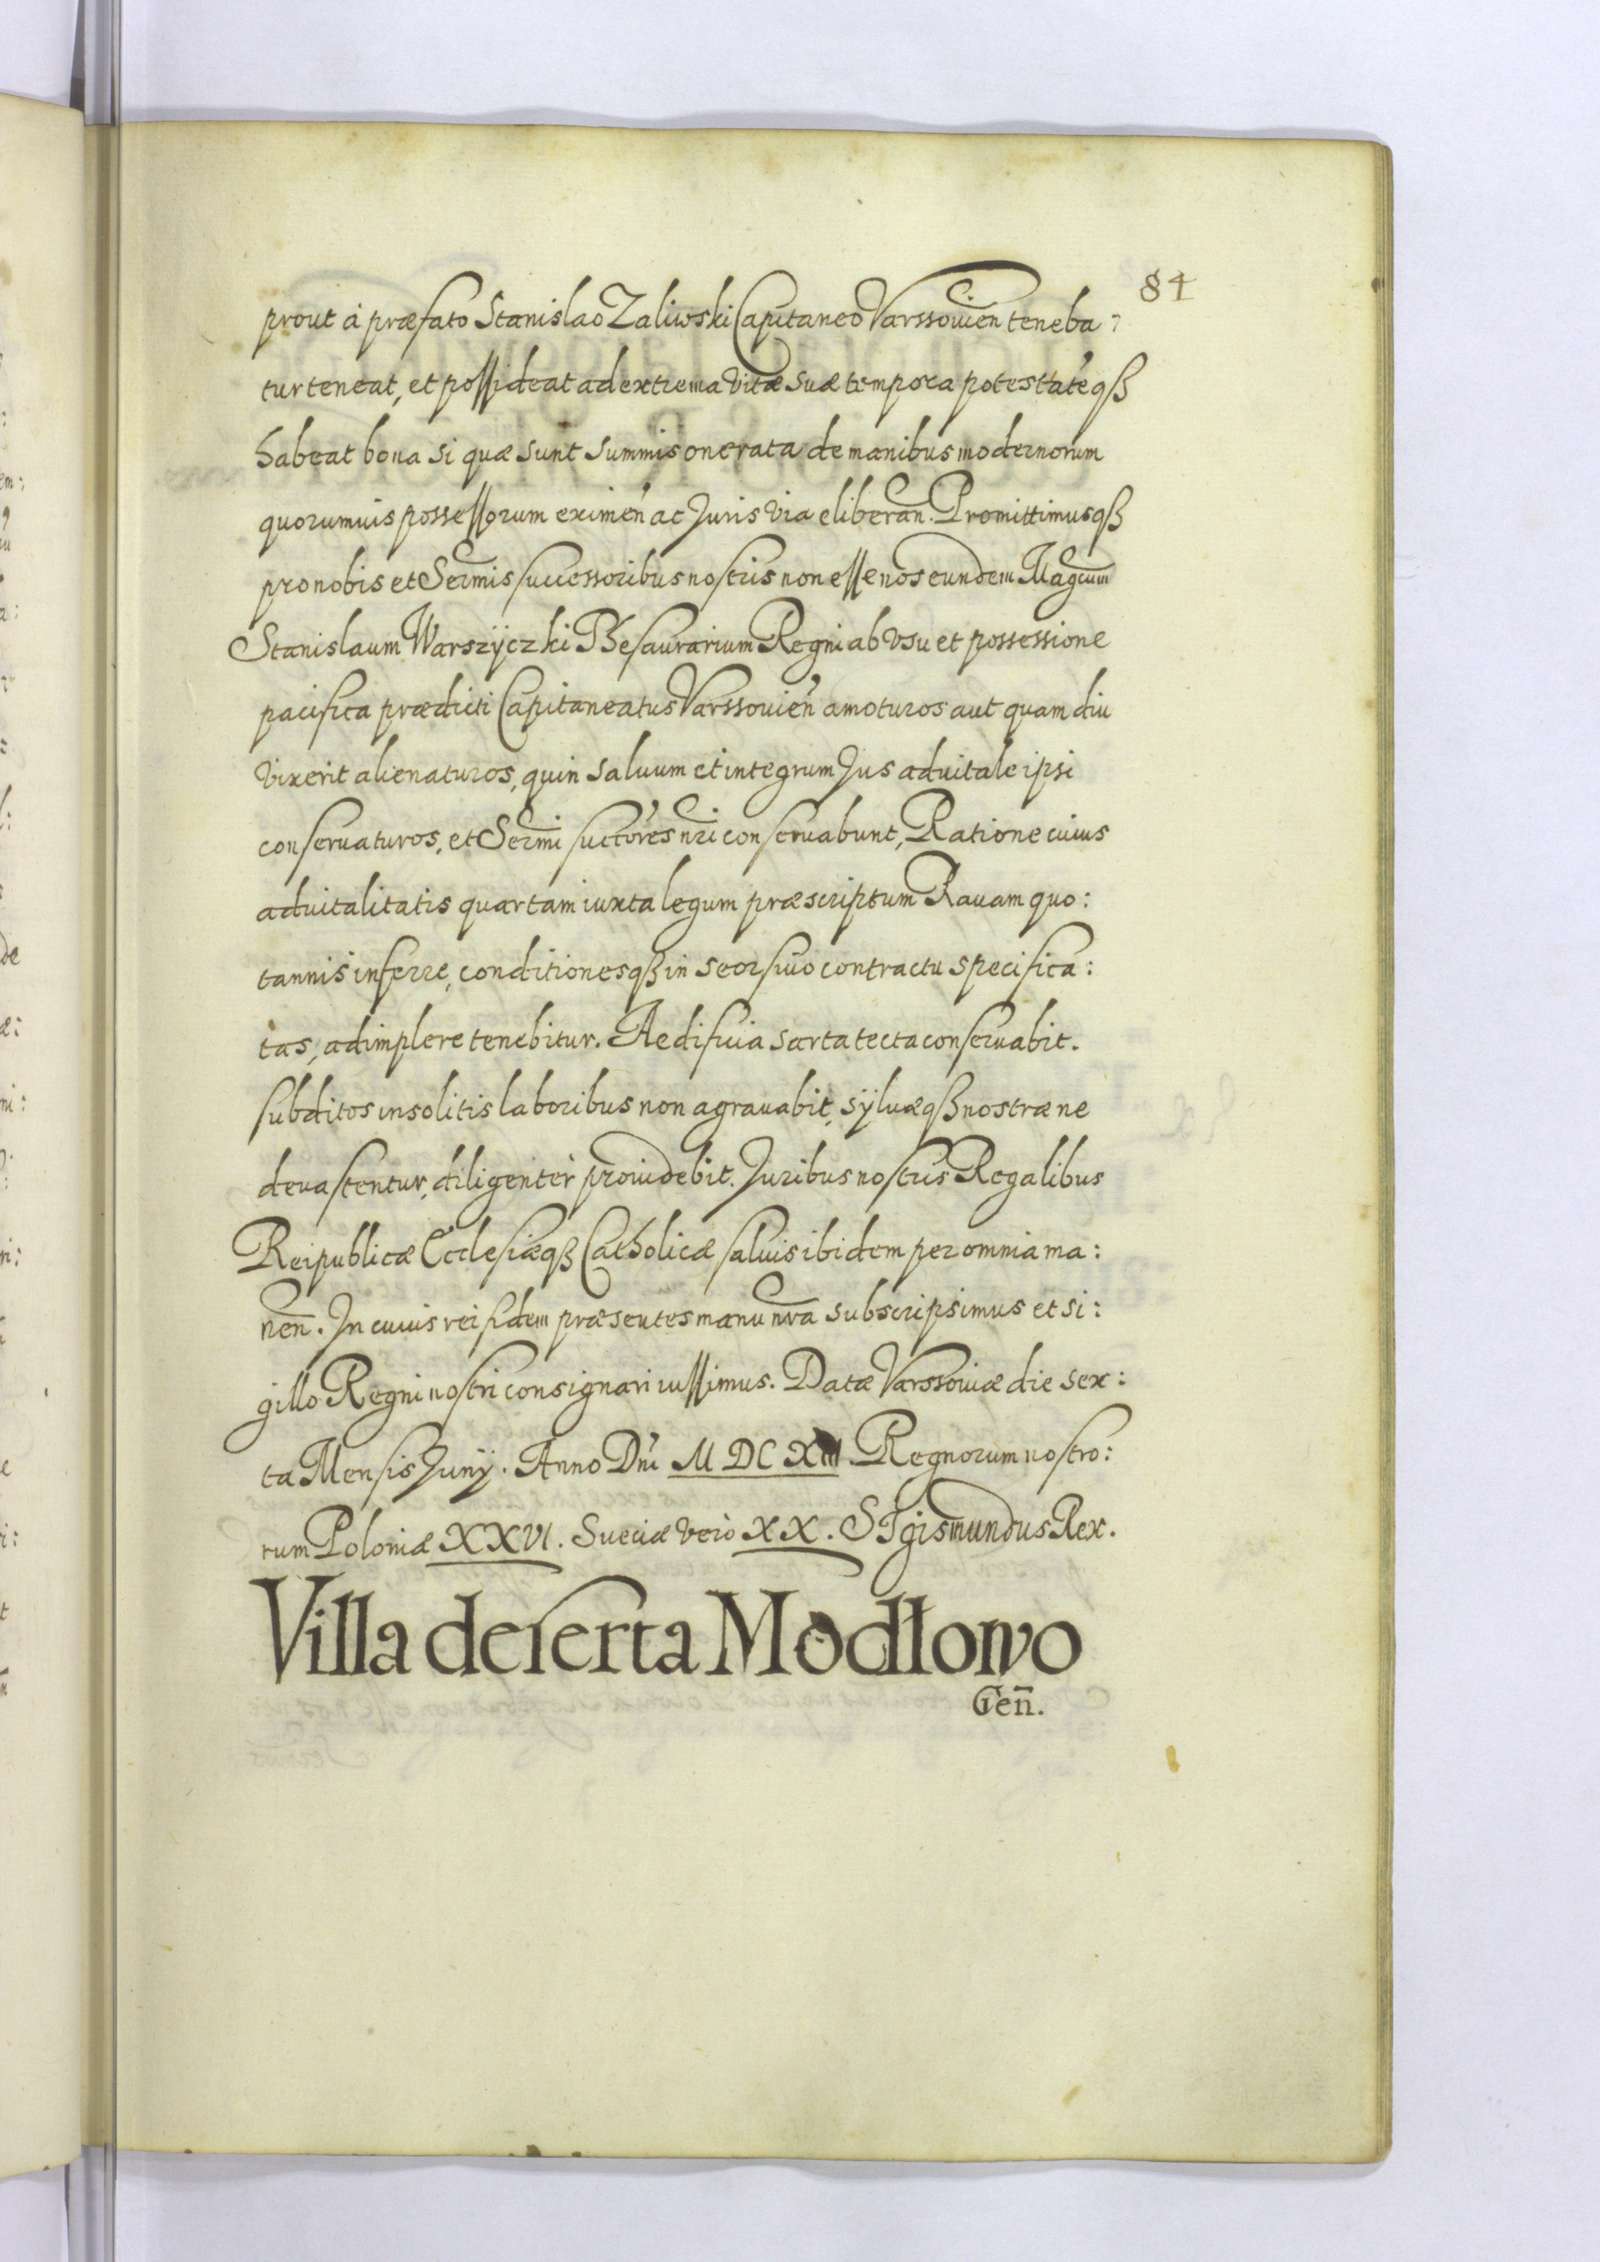 84
prout à præfato Stanislao Zaliwski Capitaneo Varssouień teneba:
tur teneat, et possideat ad extrema vitæ suæ tempora potestatéqß
habeat bona si quæ sunt summis onerata de manibus modernorum
quorumuis possessorum eximeń ac Juris via eliberan̄. Promittimusqß
pro nobis et Sermis successoribus nostris non esse nos eundem Magcum
Stanislaum Warszÿczki Thesaurarium Regni ab vsu et possessione
pacifica prædicti Capitaneatus Varssouień amoturos aut quam diu
vixerit alienaturos, quin saluum et integrum Jus aduitale ipsi
conseruaturos, et Sermi suctóres nri conseruabunt, Ratione cuius
aduitalitatis quartam iuxta legum præscriptum Rauam quo:
tannis inferre, conditionesqß in seorsiuo contractu specifica:
tas, adimplere tenebitur. Aedificia sarta tecta conseruabit.
subditos insolitis laboribus non agrauabit, sÿluæqß nostræ ne
deuastentur, diligenter prouidebit. Juribus nostris Regalibus
Reipublicæ Ecclesiæqß Catholicæ saluis ibidem per omnia ma:
nen̄. In cuius rei fidem præsentes manu nra subscripsimus et si:
gillo Regni nostri consignari iussimus. Datæ Varssouiæ die sex:
ta Mensis Junÿ. Anno Dńi M DC XIII Regnorum nostro:
rum Poloniæ XXVI. Sueciæ vero XX. SIgismundus Rex.
Villa deserta Modłowo
Gen̄.